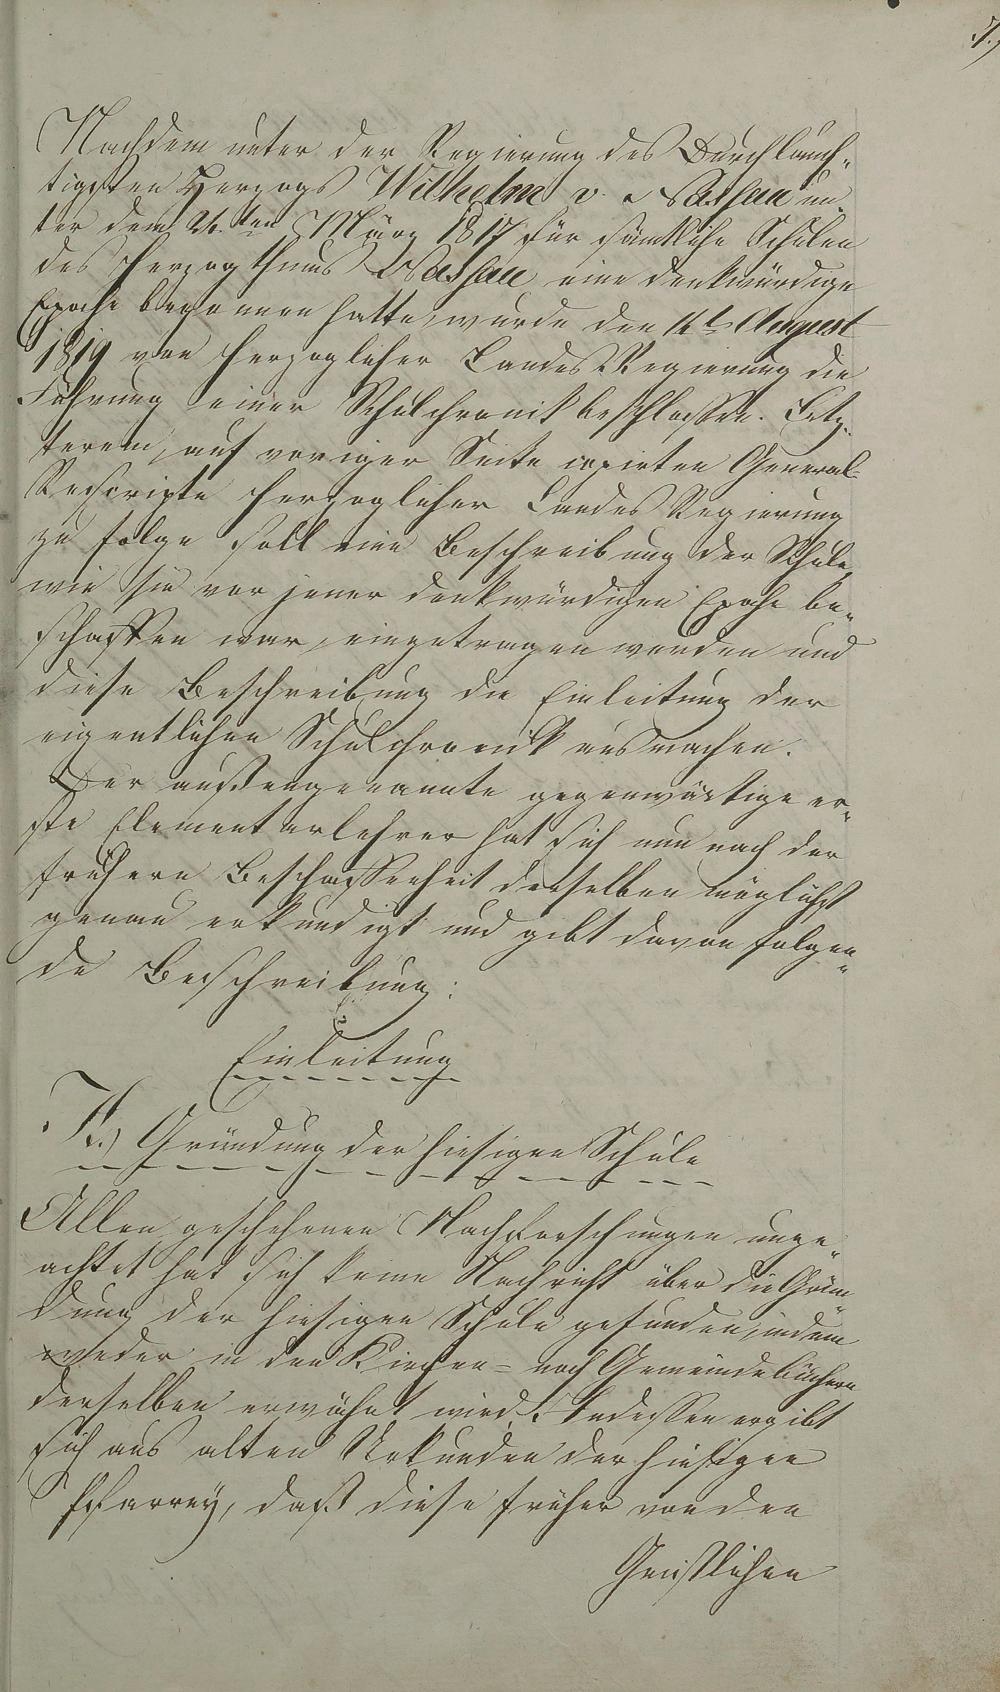 7.)
Nachdem unter der Regierung des Durchlauch-
tigsten Herzogs Wilhelm v. Nassau un-
ter dem 24.ten März 1817 für sämtliche Schulen
des Herzogthums Nassau eine denkwürdige
Epoche begonnen hatte, wurde den 14t August
1819 von Herzoglicher Landes Regierung die
Führung einer Schulchronik beschlossen. Letz-
terem, auf voriger Seite copirten General-
Rescripte Herzoglicher Landes Regierung
zu folge soll eine Beschreibung der Schule,
wie sie vor jener denkwürdigen Epoche be-
schaffen war, eingetragen werden und
diese Beschreibung die Einleitung der
eigentlichen Schulchronik ausmachen.
Der außengenannte gegenwärtige er-
ste Elementarlehrer hat sich nun nach der
frühern Beschaffenheit derselben möglichst
genau erkundigt und gibt davon folgen-
de Beschreibung:
Einleitung
A.) Gründung der hiesigen Schule
Allen geschehenen Nachforschungen unge-
achtet hat sich keine Nachricht über die Grün-
dung der hiesigen Schule gefunden, indem
weder in den Kirchen- noch Gemeindebüchern
derselben erwähnt wird. Indessen ergibt
sich aus alten Urkunden der hiesigen
Pfarrey, daß diese früher von den
Geistlichen